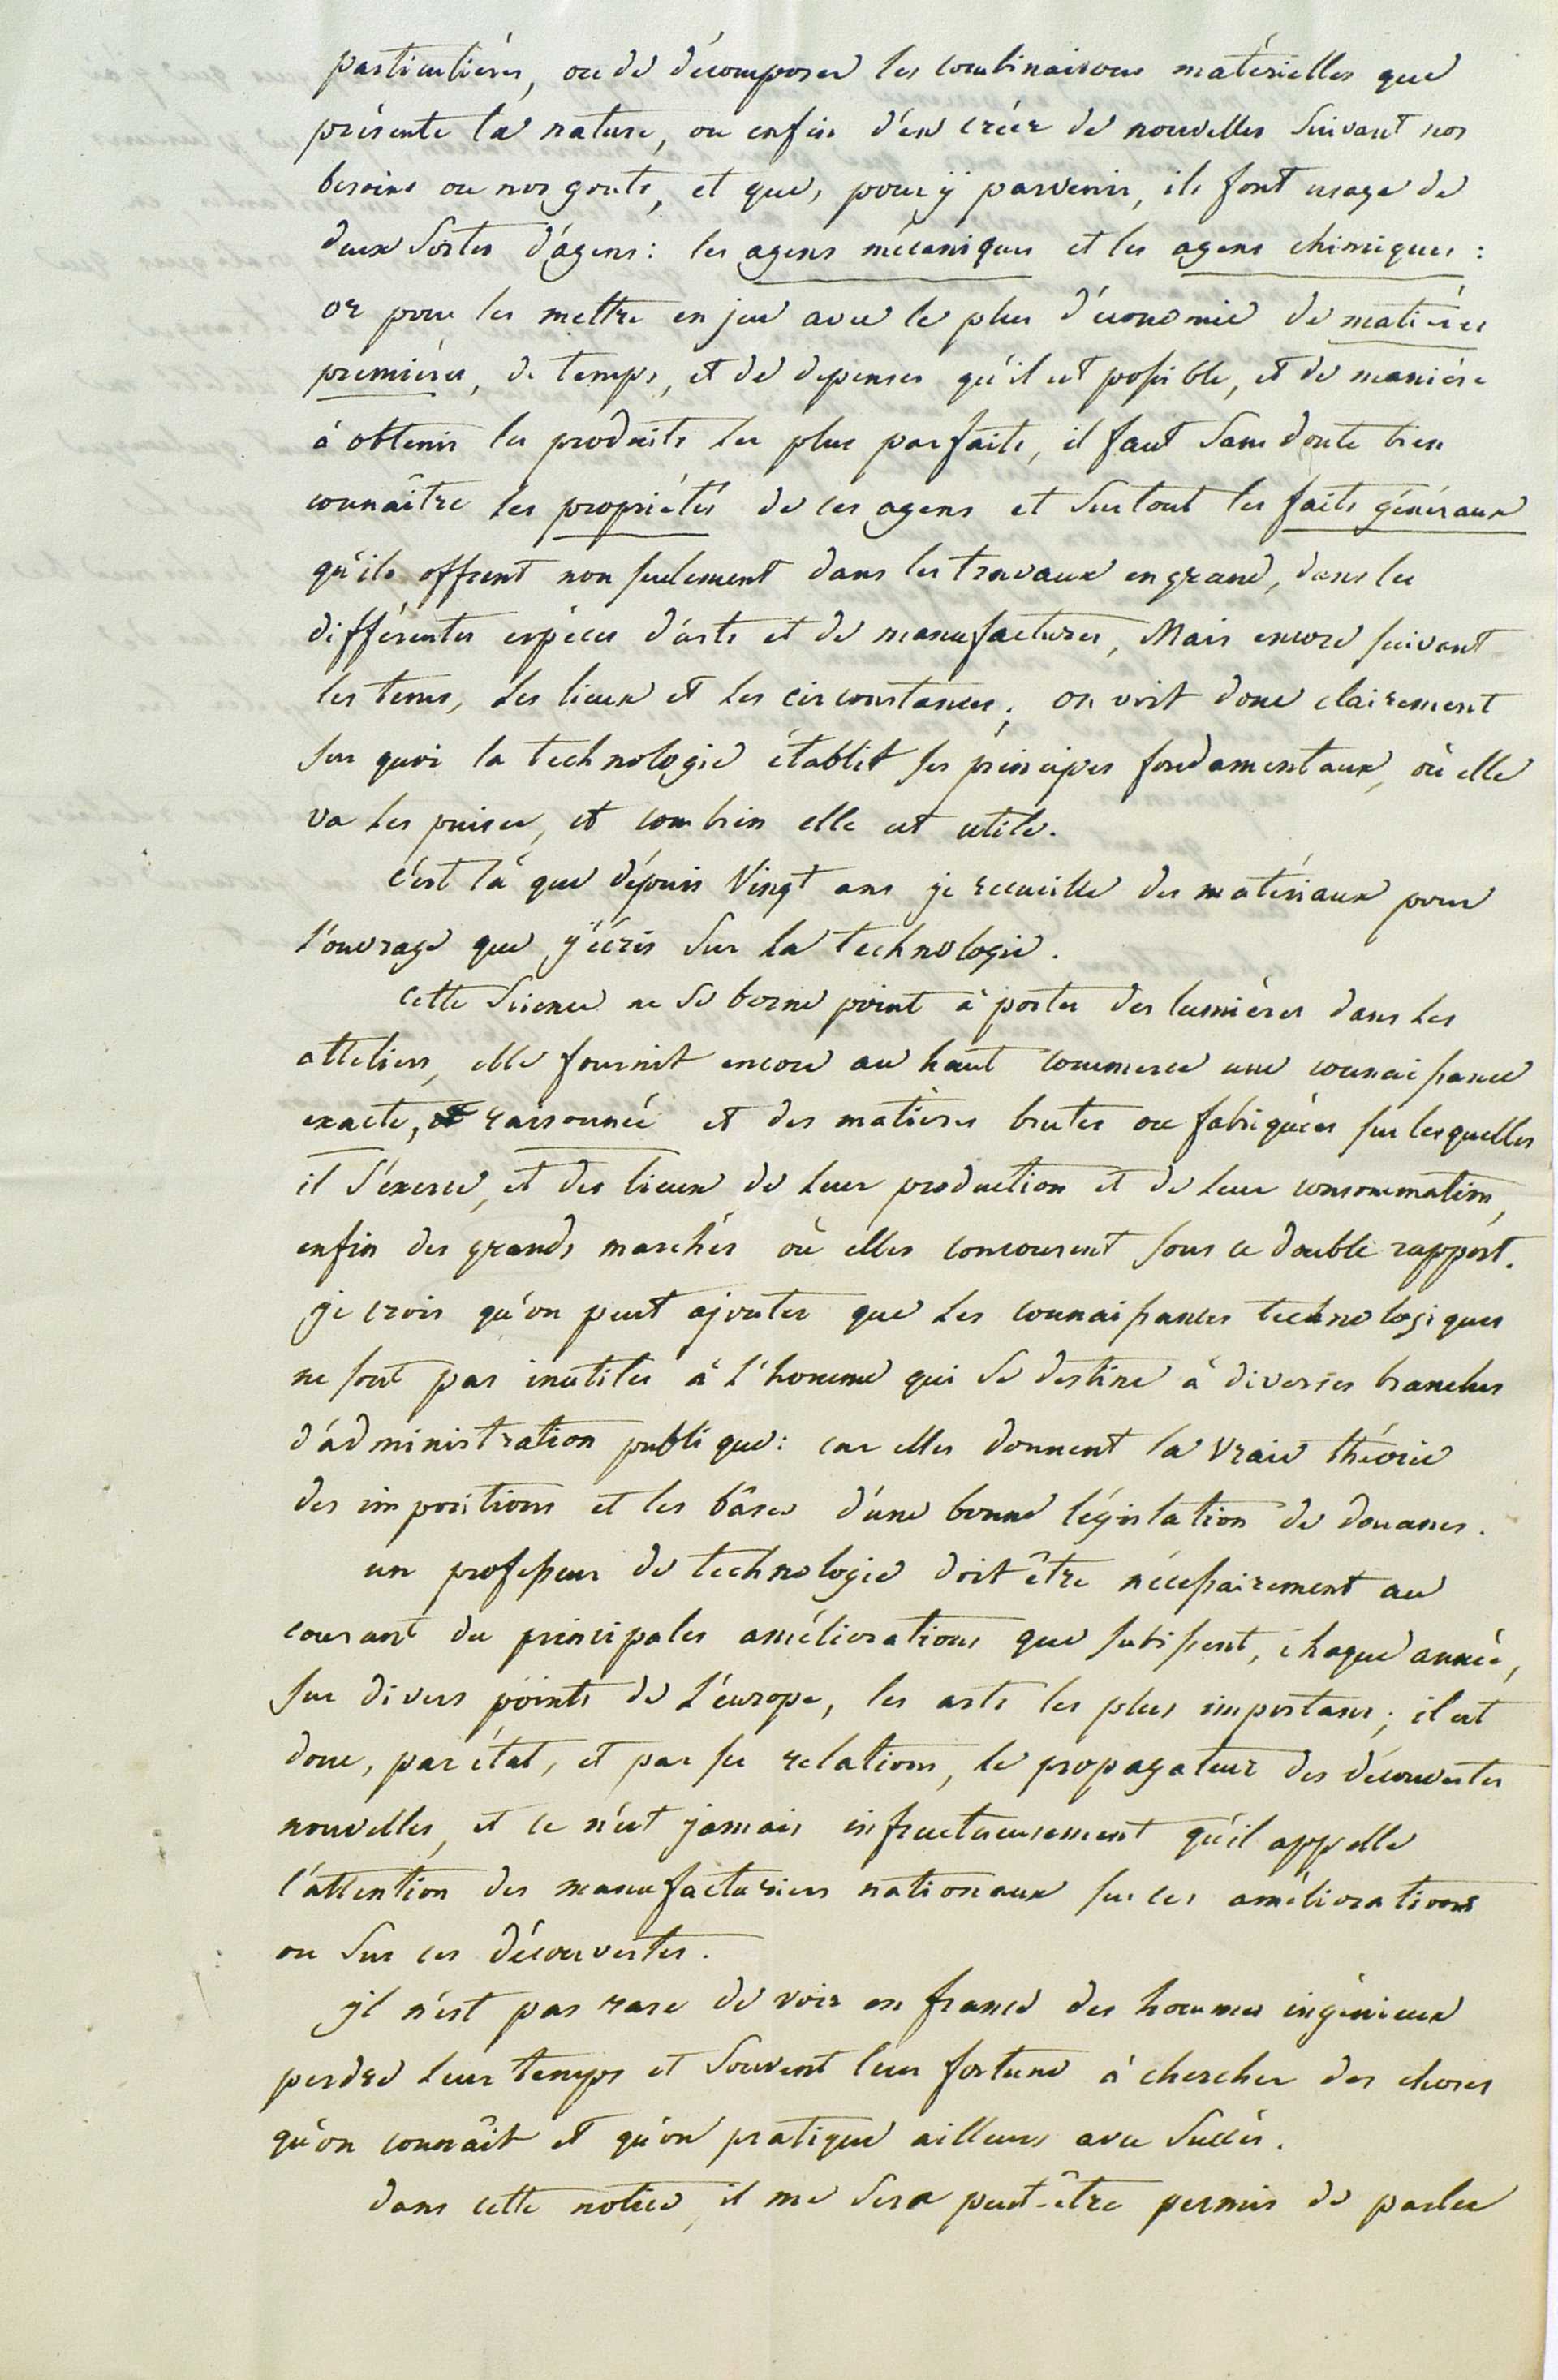 particulières, ou de décomposer les combinaisons matérielles que
présente la nature, ou enfin d'en créer de nouvelles suivant nos
besoins ou nos gouts, et que, pour ÿ parvenir, ils font usage de
deux sortes d'agens: les agens mécaniques et les agens chimiques:
or pour les mettre en jeu avec le plus d'économie de matières
premières, de temps, et de depenses qu'il est possible, et de manière
à obtenir les produits les plus parfaits, il faut sans doute bien
connaître les propriétés de ces agens et surtout les faits généraux
qu'ils offrent non seulement dans les travaux en grand, dans les
différentes espèces d'arts et de manufactures, Mais encore suivant
les tems, les lieux et les circonstances; on voit donc clairement
sur quoi la technologie établit ses principes fondamentaux, où elle
va les puiser, et combien elle est utile.
c'est là que dépuis Vingt ans je recueille des matériaux pour
l'ouvrage que j'écris sur la technologie.
cette science ne se borne point à porter des lumières dans les
atteliers, elle fournit encore au haut commerce une connaissance
exacte, et raisonnée et des matières brutes ou fabriquées sur lesquelles
il s'éxerce, et des lieux de leur production et de leur consommation,
enfin des grands marchés où elles concourent sous ce double rapport.
je crois qu'on peut ajouter que les connaissances technologiques
ne sont pas inutiles à l'homme qui se destine à diverses branches
d'administration publique: car elles donnent la vraie théorie
des impositions et les bâses d'une bonne législation de douanes.
un professeur de technologie doit être nécessairement au
courant des principales améliorations que subissent, chaque année,
sur divers points de l'europe, les arts les plus importans; il est
donc, par état, et par ses relations, le propagateur des découvertes
nouvelles, et ce n'est jamais infructueusement qu'il appelle
l'attention des manufacturiers nationaux sur ces améliorations
ou sur ces découvertes.
il n'est pas rare de voir en france des hommes ingénieux
perdre leur temps et souvent leur fortune à chercher des choses
qu'on connaît et qu'on pratique ailleurs avec succès.
dans cette notice, il me sera peut-être permis de parler